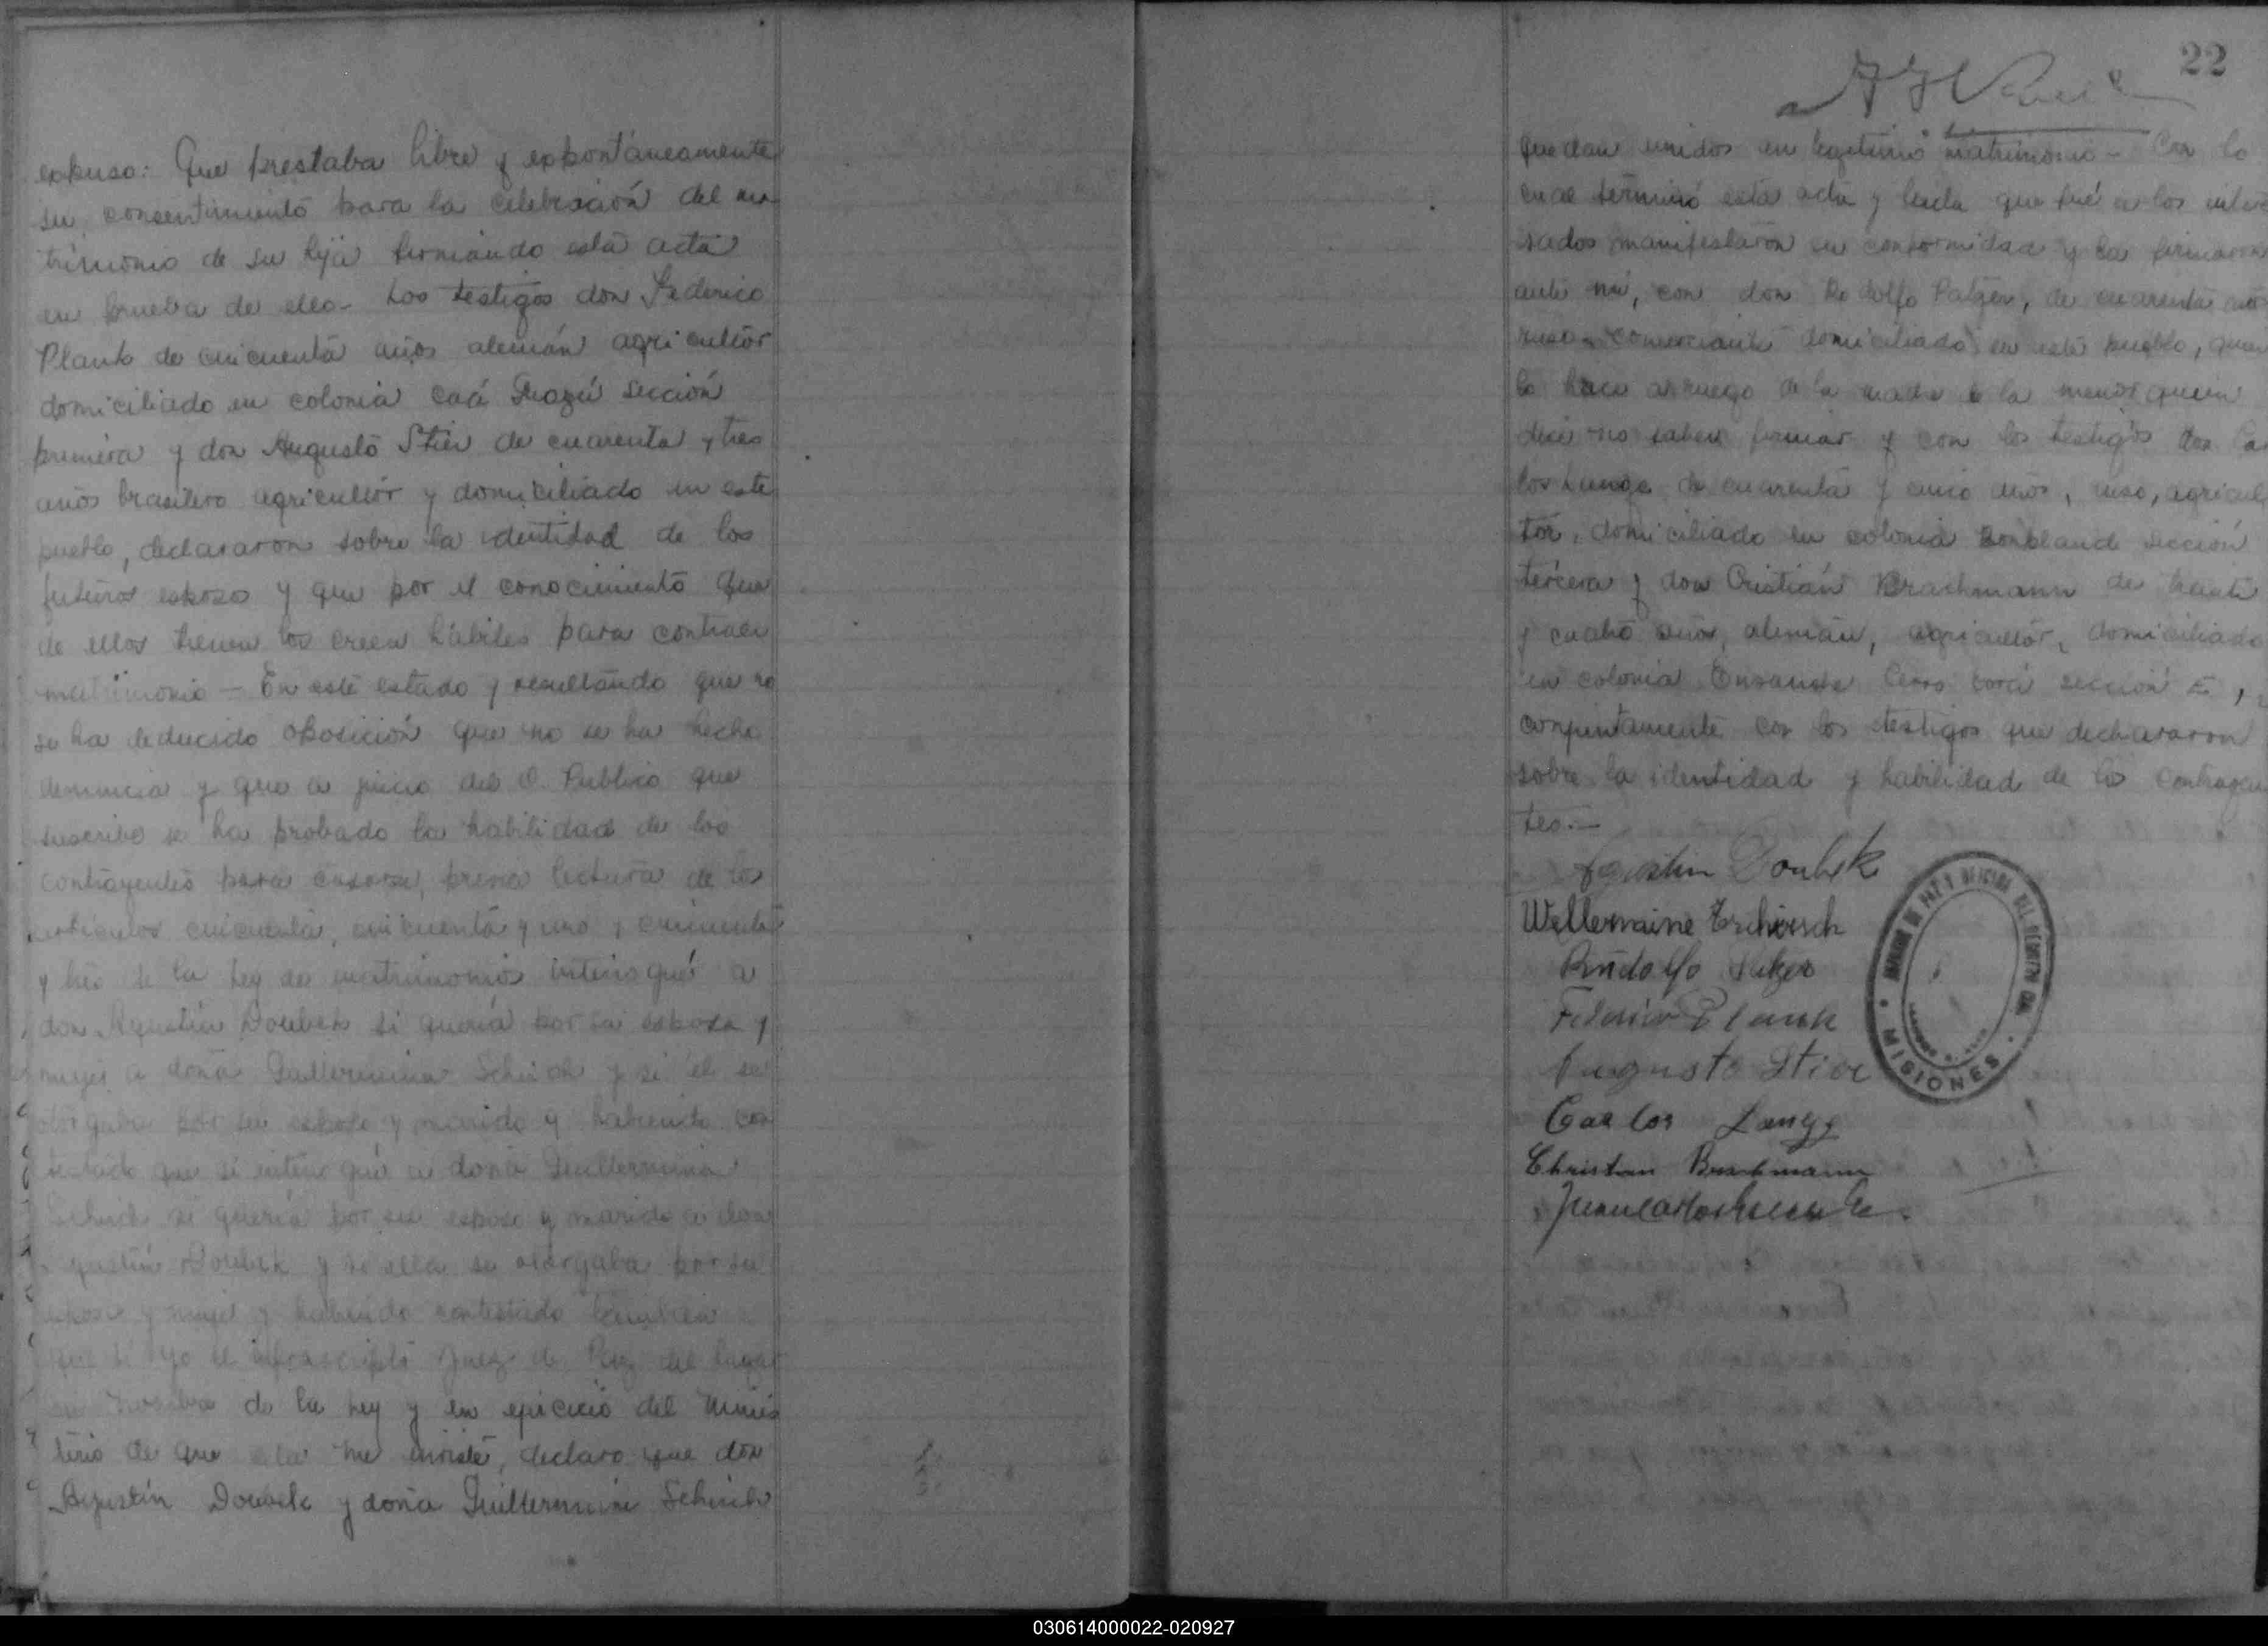 expuso: Que prestaba libre y expontáneamente
su consentimiento para la celebración del ma
trimonio de su hija firmando esta acta
en prueba de ello- Los testigos don Federico
Plank de cincuenta años alemán agricultor
domiciliado en colonia caá Guazú sección
primera y don Augusto Stier de cuarenta y tres
años brasilero agricultor y domiciliado en este
pueblo, declararon sobre la identidad de los
futuros esposos y que por el conocimiento que
de ellos tienen los creen hábiles para contraer
matrimonio - En este estado y resultando que no
se ha deducido oposición que no se ha hecho
denuncia y que a juicio del O. Publico que
suscribe se ha probado la habilidad de los
contrayentes para casarse, previa lectura de los
artículos cincuenta, cincuenta y uno y cincuenta
y tres de la ley de matrimonio interrogué a
don Agustín Doubek si quería por su esposa y
mujer a doña Guillermina Schirch y si él se
otorgaba por su esposo y marido y habiendo con
testado que sí interrogué a doña Guillermina
Schirch si quería por su esposo y marido a don
Agustín Doubek y si ella se otorgaba por su
esposa y mujer y habiendo contestado también
que sí yo el infrascripto Juez de Paz del lugar
en nombre de la ley y en ejercicio del minis
terio de que ella me inviste, declaro que don
Agustín Doubek y doña Guillermina Schirch
22
quedan unidos en legítimo matrimonio - Con lo
cual terminó esta acta y leida que fué a los intere
sados manifestaron su conformidad y la firmaron
ante mí, con don Rodolfo de cuarenta años
ruso comerciante domiciliado en este pueblo, quien
lo hace a ruego de la madre de la menor quien
dice no saber firmar y con los testigos don Car
los Lange de cuarenta y cinco años, ruso, agricul
tor, domiciliado en colonia Bonpland sección
tercera y don Cristián Brachmann de treinta
y cuatro años, alemán, agricultor, domiciliado
en colonia Ensanche Cerro Corá sección E,
conjuntamente con los testigos que declararon
sobre la identidad y habilidad de los contrayen
tes.-
Agustin Doubek
Rudolfo
Federico Plank
Augusto Stier
Carlos Lange
Christian Brachmann
MISIONES
030614000022-020927